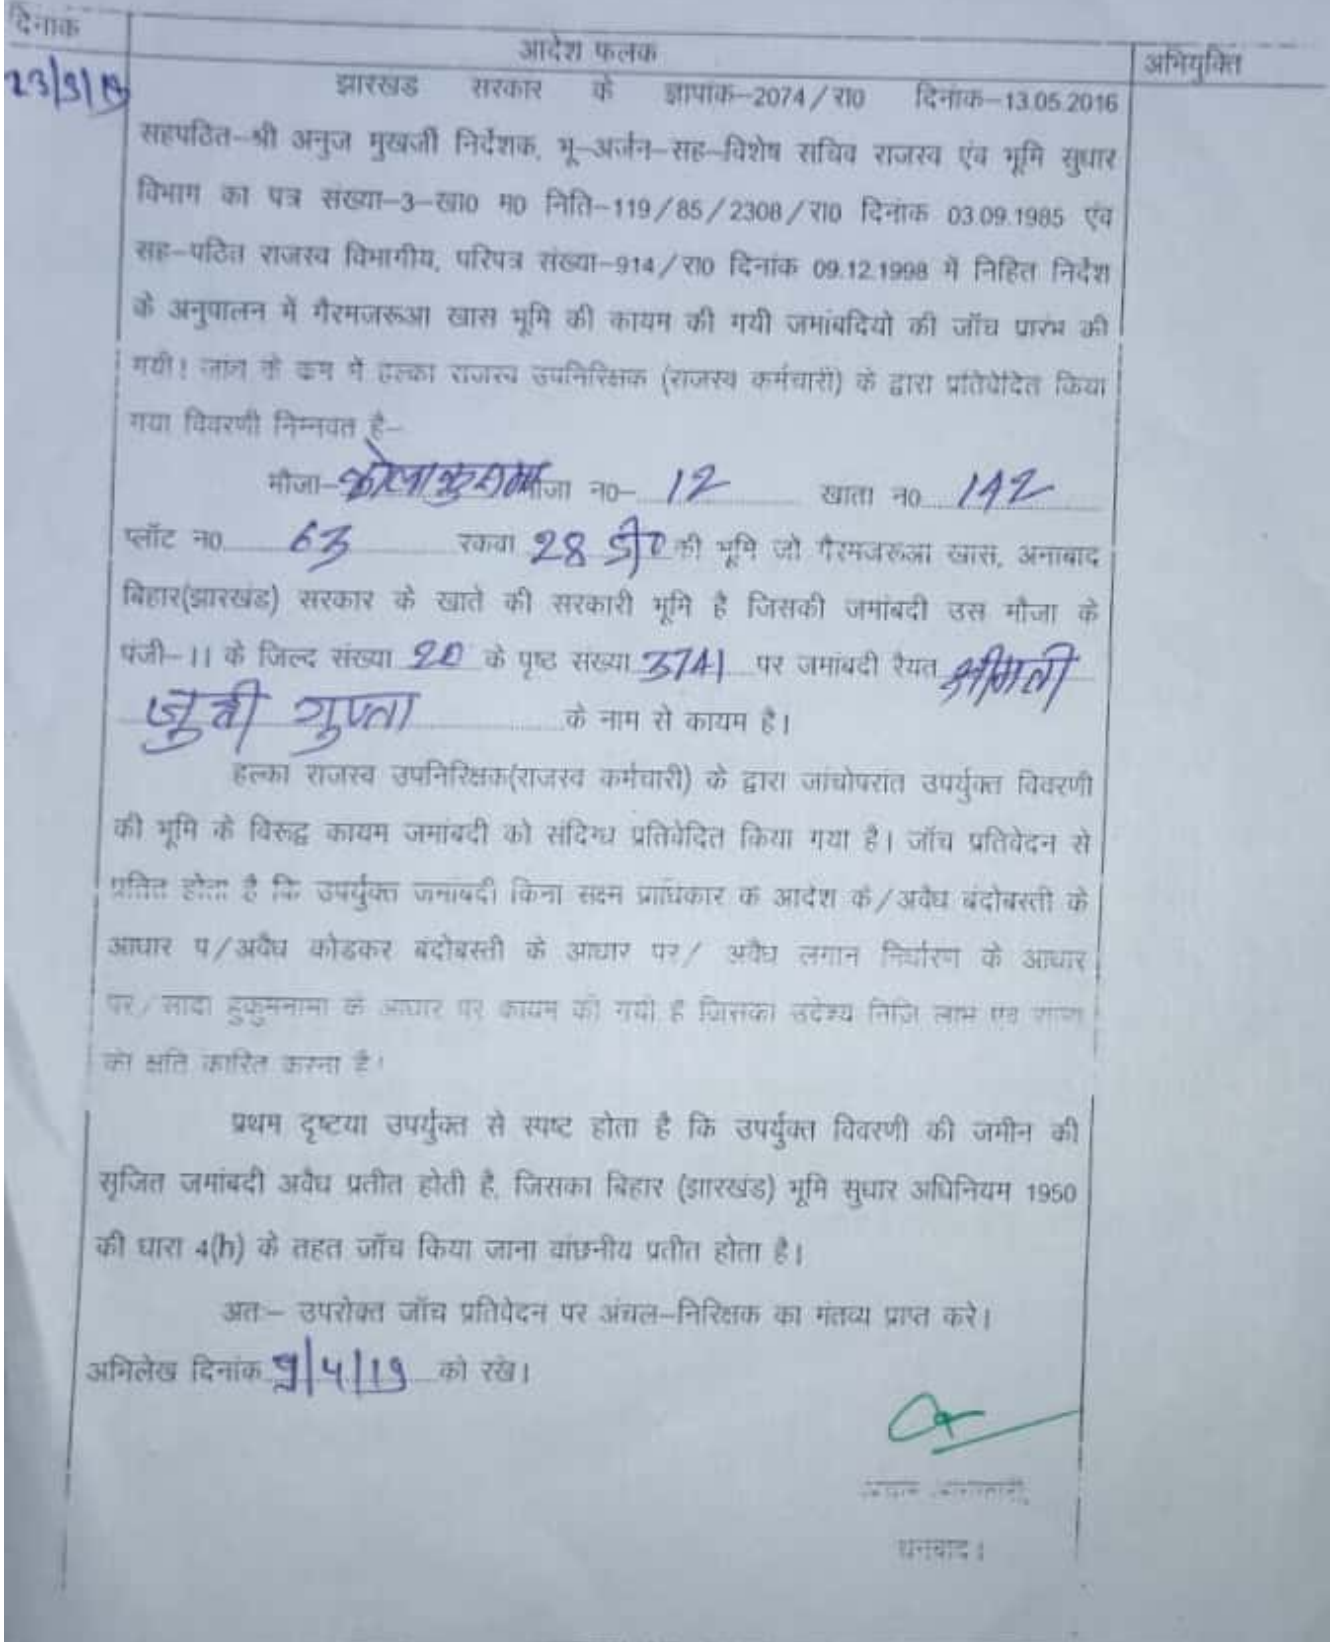 दिनांक
आदेश फलक
अभियुक्ति
झारखंड सरकार के ज्ञापांक–2074/रा0 दिनांक–13.05.2016
सहपठित–श्री अनुज मुखर्जी निर्देशक, भू–अर्जन–सह–विशेष सचिव राजस्व एंव भूमि सुधार
विभाग का पत्र संख्या–3–खा0 म0 निति–119/85/2308/रा0 दिनांक 03.09.1985 एंव
सह–पठित राजस्व विभागीय, परिपत्र संख्या–914/रा0 दिनांक 09.12.1998 में निहित निदेश
के अनुपालन में गैरमजरूआ खास भूमि की कायम की गयी जमांबदियो की जॉच प्रारंभ की
गयी। जांच के क्रम में हल्का राजस्व उपनिरिक्षक (राजस्व कर्मचारी) के द्वारा प्रतिवेदित किया
गया विवरणी निम्नवत है–
मौजा– मौजा न0– 12 खाता न0 142
प्लॉट न0 63 रकवा 28 डी0 की भूमि जो गैरमजरूआ खास, अनाबाद
बिहार(झारखंड) सरकार के खाते की सरकारी भूमि है जिसकी जमांबदी उस मौजा के
पंजी–11 के जिल्द संख्या 20 के पृष्ठ संख्या 3741 पर जमांबदी रैयत श्रीमती
गुप्ता के नाम से कायम है।
हल्का राजस्व उपनिरिक्षक(राजस्व कर्मचारी) के द्वारा जांचोपरांत उपर्युक्त विवरणी
की भूमि के विरूद्ध कायम जमांबदी को संदिग्ध प्रतिवेदित किया गया है। जॉच प्रतिवेदन से
प्रतित होता है कि उपर्युक्त जमांबदी बिना सक्ष्म प्राधिकार के आदेश के/अवैध बंदोबस्ती के
आधार प/अवैध कोडकर बंदोबस्ती के आधार पर/ अवैध लगान निर्धारण के आधार
पर/ सादा हुकुमनामा के आधार पर कायम की गयी है जिसका उदेश्य निजि लाभ एव राज्य
को क्षति कारित करना है।
प्रथम दृष्टया उपर्युक्त से स्पष्ट होता है कि उपर्युक्त विवरणी की जमीन की
सृजित जमांबदी अवैध प्रतीत होती है, जिसका बिहार (झारखंड) भूमि सुधार अधिनियम 1950
की धारा 4(h) के तहत जॉच किया जाना वांछनीय प्रतीत होता है।
अतः– उपरोक्त जॉच प्रतिवेदन पर अंचल–निरिक्षक का मंतव्य प्राप्त करे।
अभिलेख दिनांक 9/4/19 को रखे।
धनबाद।